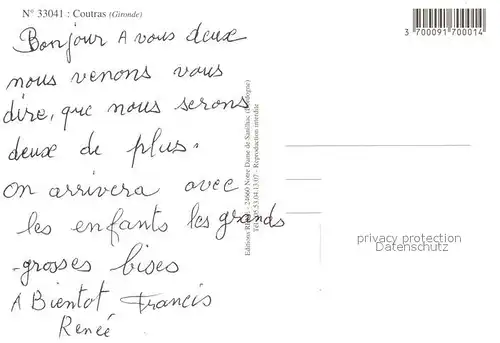 N° 33041 : Coutras (Gironde)
Bonjour A vous deux
nous venons vous
dire, que nous serons
deux de plus.
On arrivera avec
les enfants les grands
-grosses bises
A Bientot Francis
Renée
3 700091 700014
Editions - 24660 Notre Dame de Sanilhac
53.04.13.07 - Reproduction interdite
privacy protection
Datenschutz